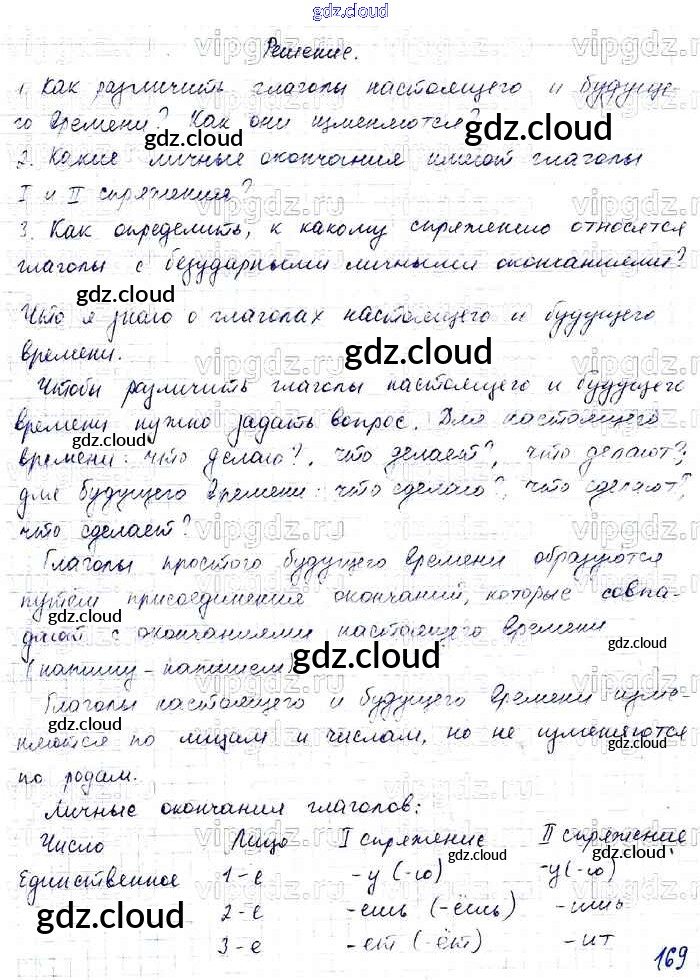 gdz.cloud
Решение.
1. Как различить глаголы настоящего и будуще-
го времени? Как они изменяются?
2. Какие личные окончания имеют глаголы
I и II спряжения?
3. Как определить, к какому спряжению относятся
глаголы с безударными личными окончаниями?
Что я знаю о глаголах настоящего и будущего
времени.
Чтобы различить глаголы настоящего и будущего
времени нужно задать вопрос. Для настоящего
времени: что делаю?, что делает?, что делают?;
для будущего времени: что сделаю?, что сделают?,
что сделает?
Глаголы простого будущего времени образуются
путём присоединения окончаний, которые совпа-
дают с окончаниями настоящего времени
(напишу - напишем)
Глаголы настоящего и будущего времени изме-
няются по лицам и числам, но не изменяются
по родам.
Личные окончания глаголов:
Число Лицо I спряжение II спряжение
Единственное 1-е -у (-ю) -у (-ю)
2-е -ешь (-ёшь) -ишь
3-е -ет (-ёт) -ит
169